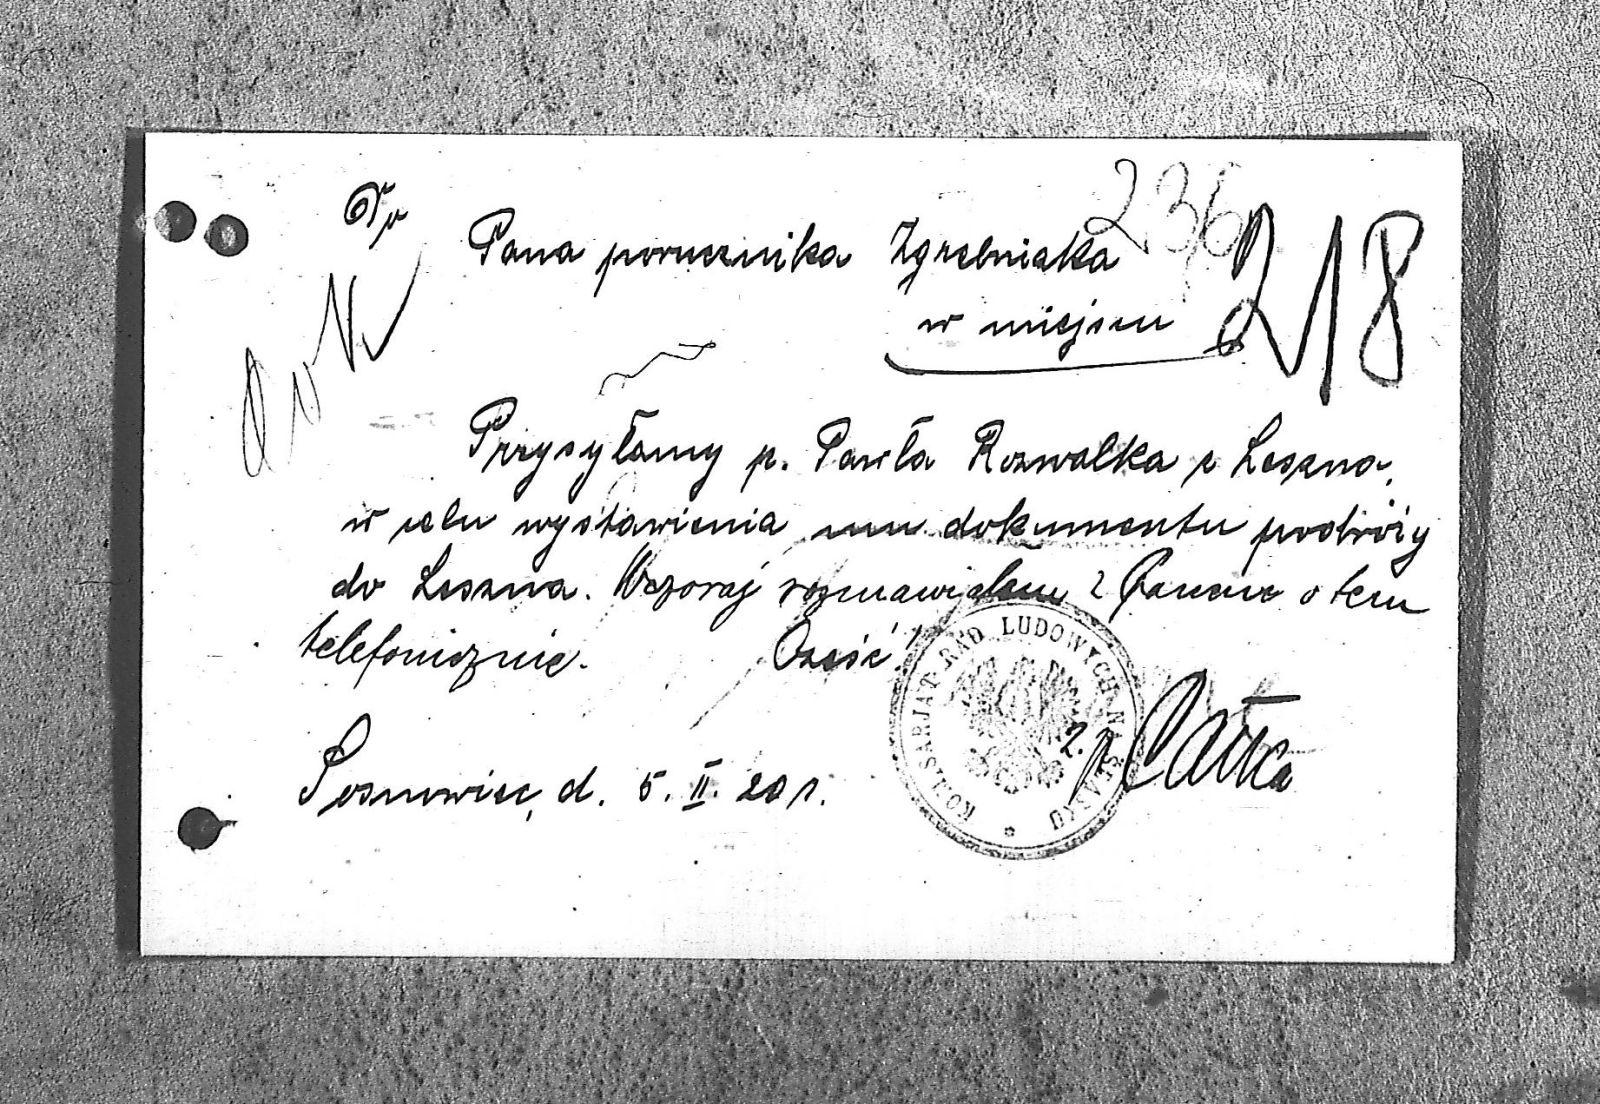 236
218
Do
Pana porucznika Zgrzebniaka
w miejscu
Przysyłamy p. Pawła Rozwalka z Leszna,
w celu wystawienia mu dokumentu podróży
do Leszna. Wczoraj rozmawiałem z Panem o tem
telefonicznie. Cześć!
KOMISARJAT RAD LUDOWYCH NA ŚLĄSKU
Sosnowiec, d. 5. II. 20 r.